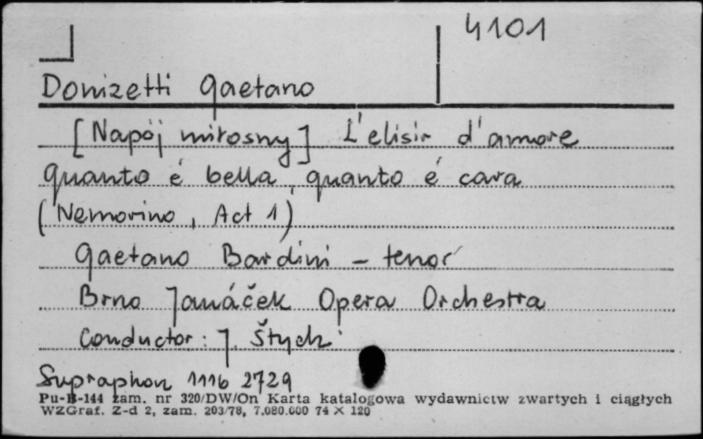 4101
Donizetti Gaetano
[Napój miłosny] L'elisir d'amore
Quanto é bella, quanto é cara
(Nemorino, Act 1)
Gaetano Bardini - tenor
Brno Janáček Opera Orchestra
Conductor: J. Štych
Supraphon 1116 2729
Pu-B-144 zam. nr 320/DW/On Karta katalogowa wydawnictw zwartych i ciągłych
WZGraf. Z-d 2, zam. 203/78, 7.080.000 74 × 120